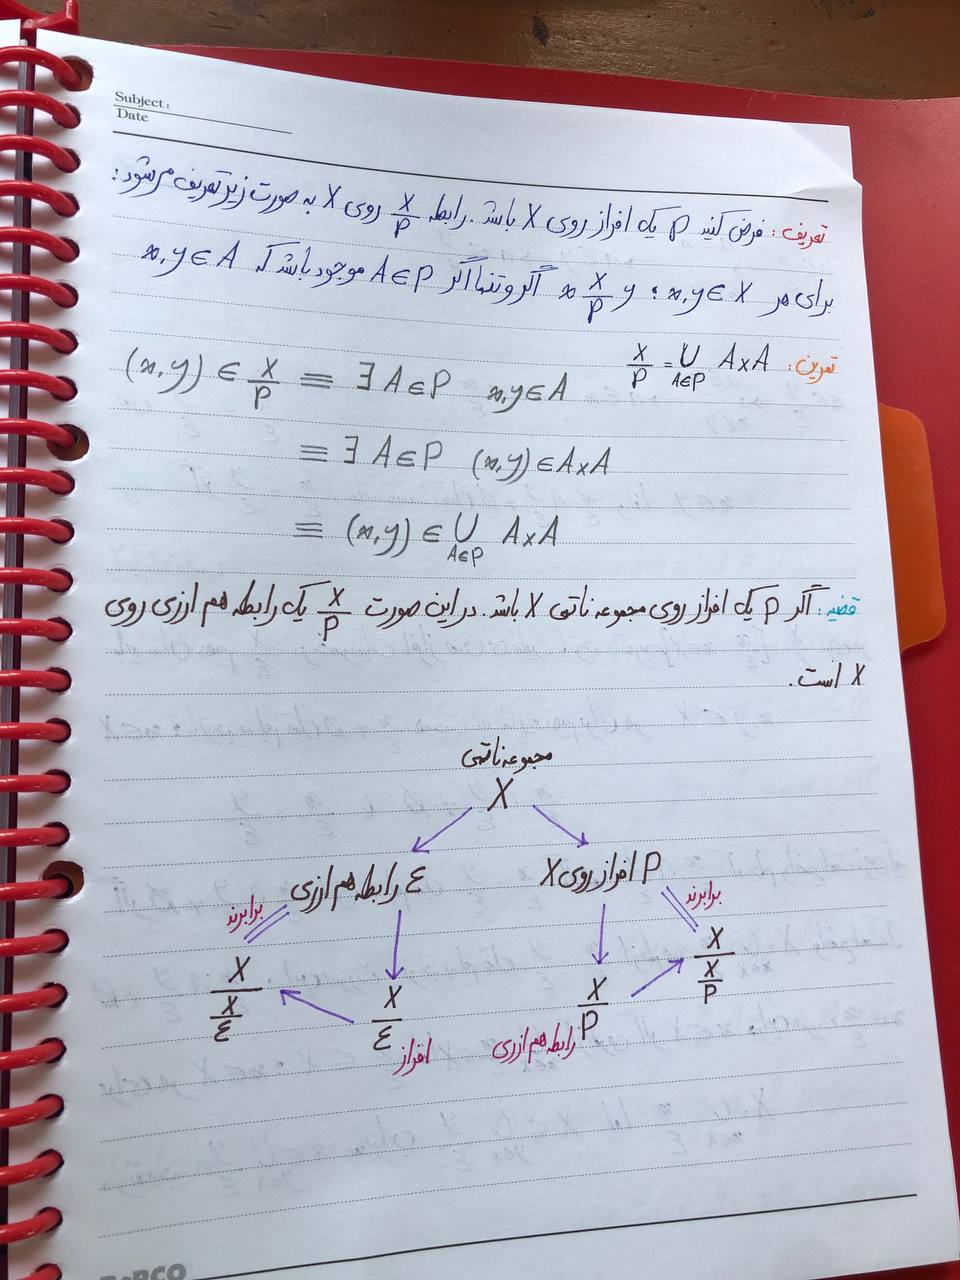 Subject:
Date
تعریف: فرض کنید P یک افراز روی X باشد. رابطه X/P روی X به صورت زیر تعریف می‌شود:
برای هر x,y ∈ X ؛ x X/P y اگر و تنها اگر A∈P موجود باشد که x,y ∈ A
تمرین: X/P = ∪_{A∈P} A×A
(x,y) ∈ X/P ≡ ∃ A∈P x,y∈A
≡ ∃ A∈P (x,y)∈A×A
≡ (x,y) ∈ ∪_{A∈P} A×A
قضیه: اگر P یک افراز روی مجموعه ناتهی X باشد. در این صورت X/P یک رابطه هم ارزی روی
X است.
مجموعه ناتهی
X
P افراز روی X
ε رابطه هم ارزی
برابرند
برابرند
X/(X/P)
X/P
X/ε
X/(X/ε)
رابطه هم ارزی
افراز